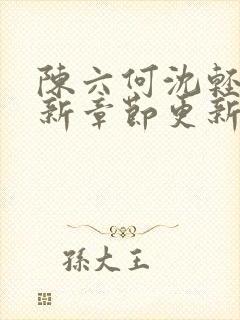 陳六何沈輕
新章節更新
孫大王